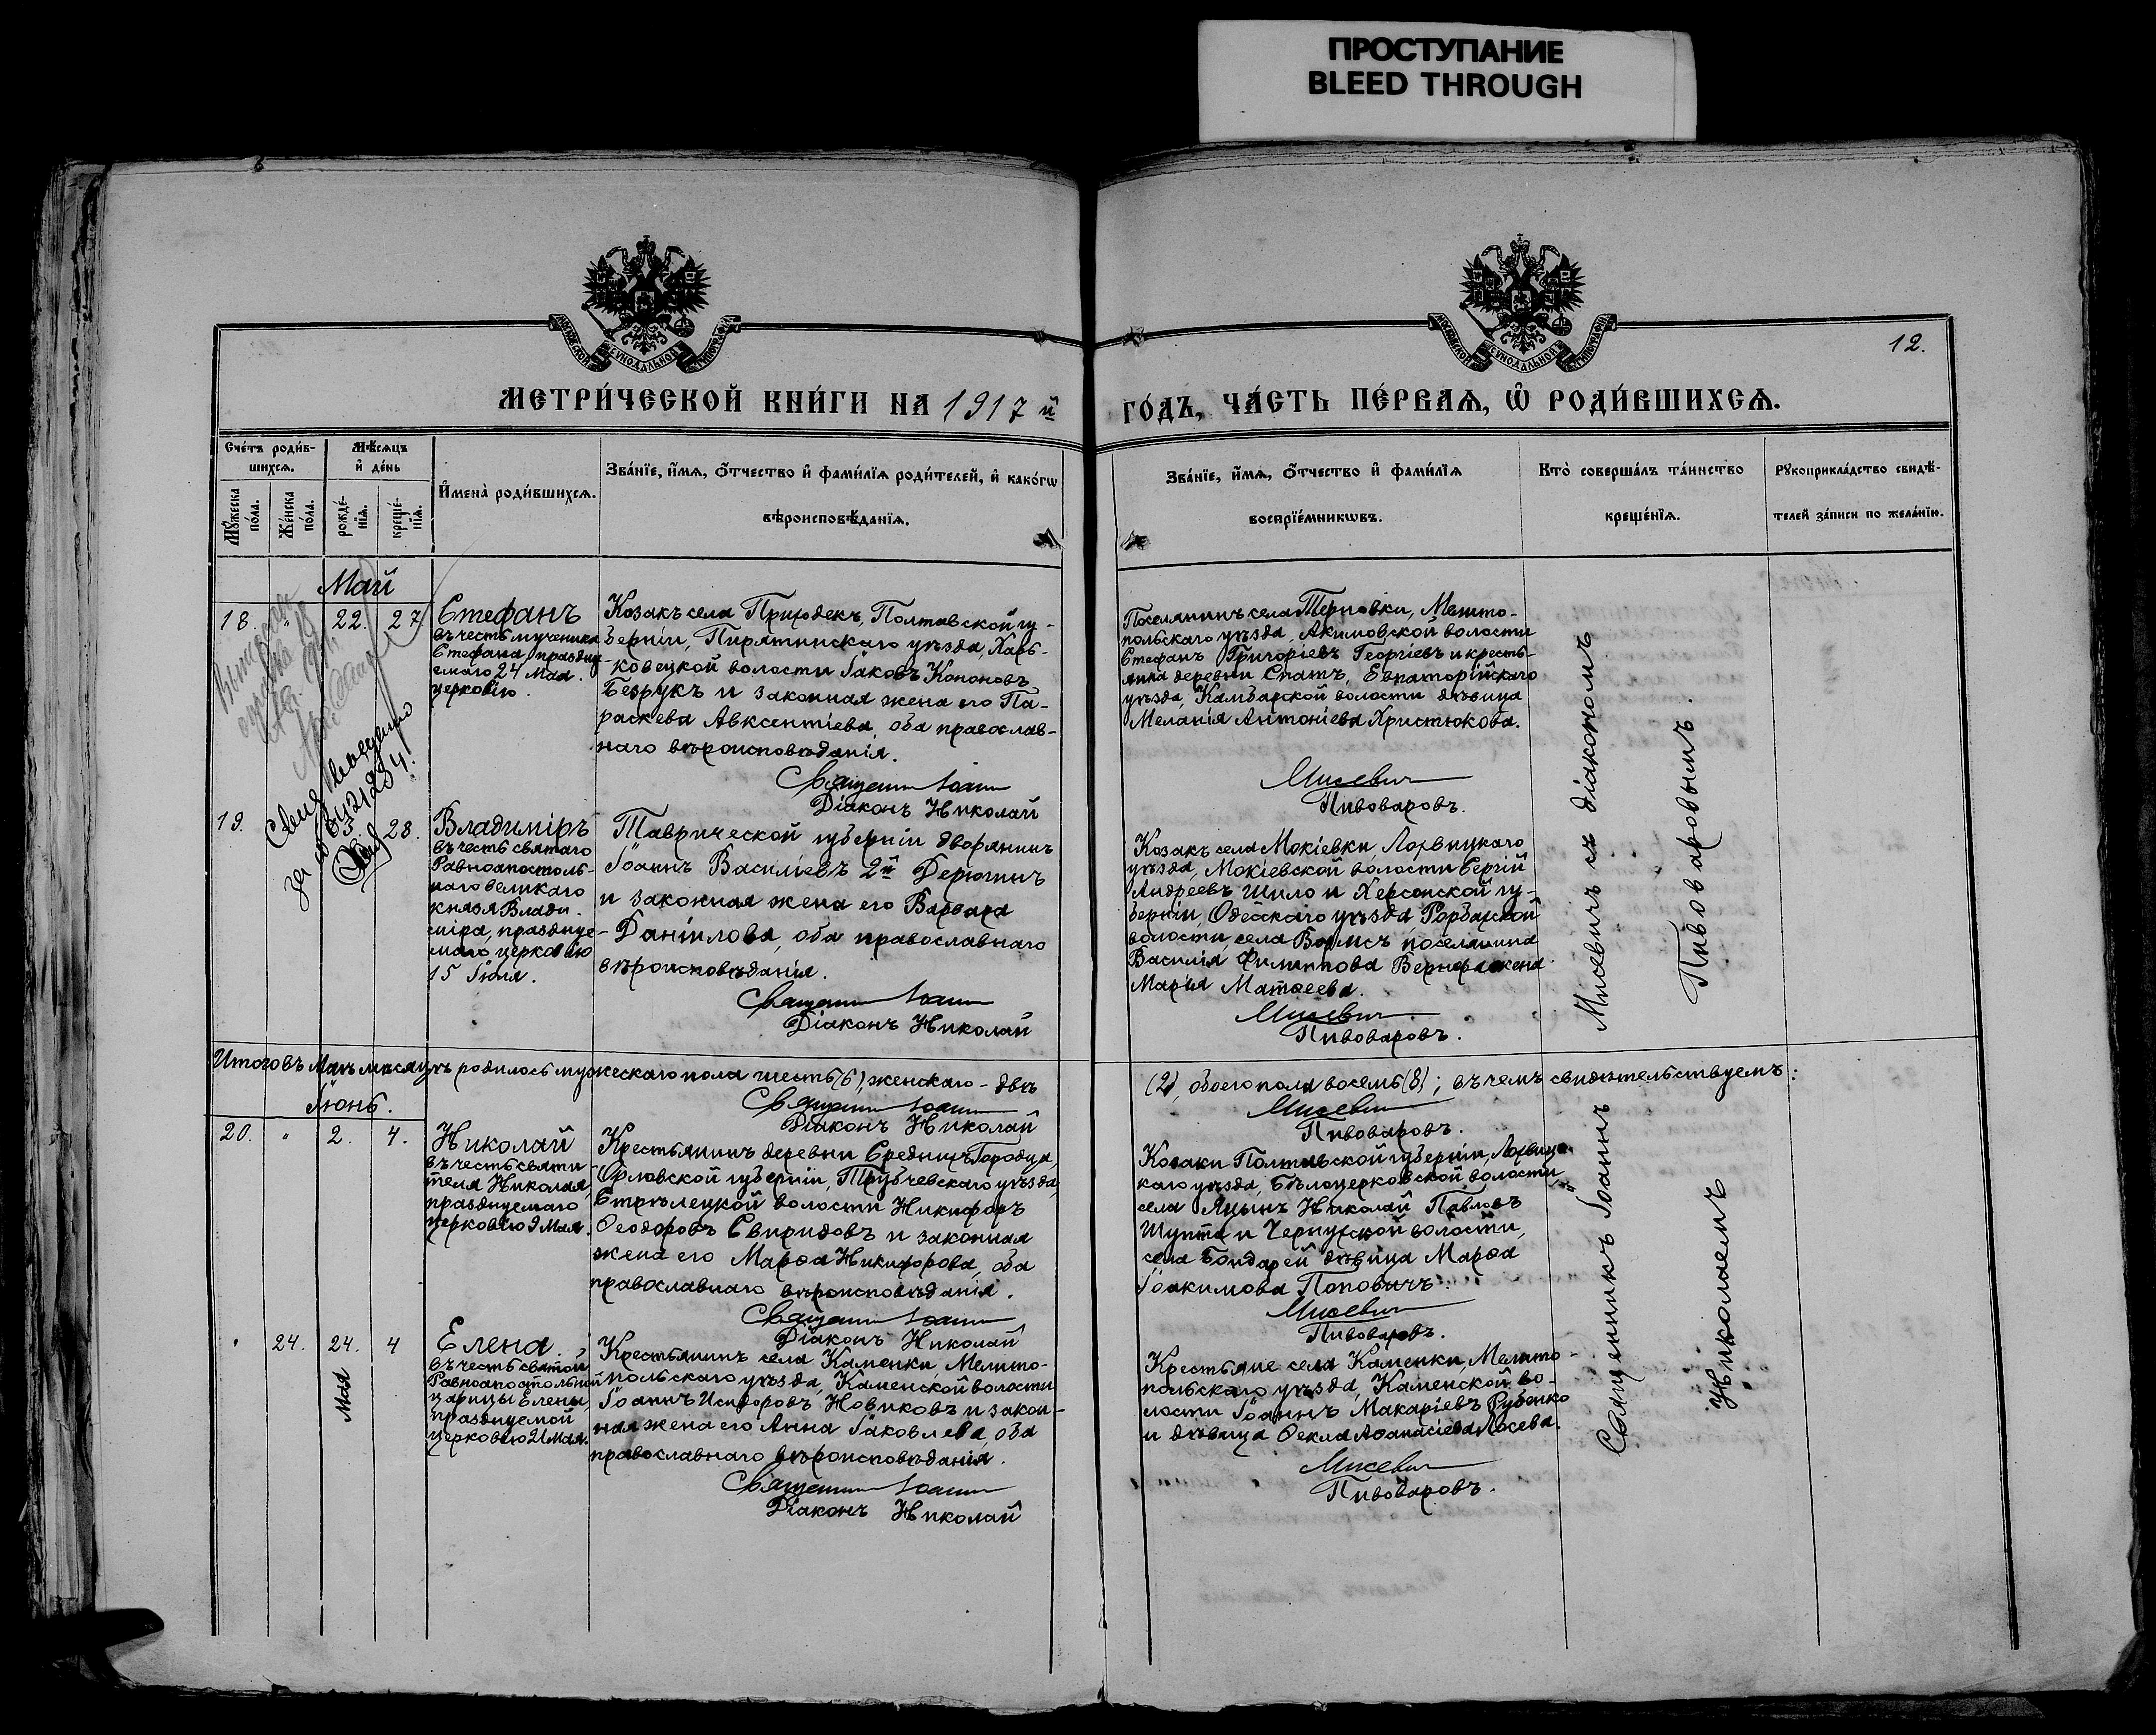 ПРОСТУПАНИЕ
BLEED THROUGH
МОСКОВСКОЙ СѴНОДАЛЬНОЙ ТИПОГРАФІИ
МОСКОВСКОЙ СѴНОДАЛЬНОЙ ТИПОГРАФІИ
12.
МЕТРИ́ЧЕСКОЙ КНИ́ГИ НА 1917 й
ГО́ДЪ, ЧА́СТЬ ПЕ́РВАѦ, Ѡ҆ РОДИ́ВШИХСѦ.
Сче́тъ роди́в-
шихсѧ.
Мѣ́сѧцъ
и҆ де́нь
Мꙋ́жеска
по́ла.
Же́нска
по́ла.
рожде́-
нїѧ.
креще́-
нїѧ.
И҆мена̀ роди́вшихсѧ.
Зва́нїе, и҆́мѧ, ѻ҆́тчество и҆ фами́лїѧ роди́телей, и҆ како́гѡ
вѣроисповѣ́данїѧ.
Зва́нїе, и҆́мѧ, ѻ҆́тчество и҆ фами́лїѧ
воспрїе́мникѡвъ.
Кто̀ соверша́лъ та́инство
креще́нїѧ.
Рꙋкоприкла́дство свидѣ́-
телей за́писи по жела́нїю.
Май
18. " 22. 27
Стефанъ
въ честь мученика
Стефана, праздну-
емаго 24 Мая
церковію.
Козакъ села Приходекъ, Полтавской гу-
берніи, Пирятинскаго уѣзда, Харь-
ковецкой волости Іаковъ Кононовъ
Безрукъ и законная жена его Па-
раскева Авксентіева, оба православ-
наго вѣроисповѣданія.
Священникъ Іоаннъ
Діаконъ Николай
Поселянинъ села Терновки, Мелито-
польскаго уѣзда, Акимовской волости
Стефанъ Григоріевъ Георгіевъ и кресть-
янка деревни Спатъ, Евпаторійскаго
уѣзда, Камбарской волости дѣвица
Меланія Антоніева Христюкова.
Мисевичъ
Пивоваровъ.
19. 28.
Владиміръ
въ честь святаго
Равноапостоль-
наго великаго
князя Влади-
міра, празднуе-
маго церковію
15 Іюля.
Таврической губерніи дворянинъ
Іоаннъ Василіевъ 2й Дерюгинъ
и законная жена его Варвара
Даніилова, оба православнаго
вѣроисповѣданія.
Священникъ Іоаннъ
Діаконъ Николай
Козакъ села Мокіевки Лохвицкаго
уѣзда, Мокіевской волости Сергій
Андреевъ Шило и Херсонской гу-
берніи Одесскаго уѣзда, Рорбахской
волости, села Вормсъ поселянина
Василія Филиппова жена
Марія Матѳеева.
Мисевичъ
Пивоваровъ.
Итого въ Маѣ мѣсяцѣ родилось мужескаго пола шесть (6), женскаго - двѣ
(2), обоего пола восемь (8); въ чемъ свидѣтельствуемъ:
Священникъ Іоаннъ
Діаконъ Николай
Мисевичъ
Пивоваровъ.
Іюнь.
20. " 2. 4.
Николай
въ честь святи-
теля Николая,
празднуемаго
церковію 9 Мая.
Крестьянинъ деревни Среднихъ Городца,
Орловской губерніи, Трубчевскаго уѣзда,
Стрѣлецкой волости Никифоръ
Ѳеодоровъ Свиридовъ и законная
жена его Марѳа Никифорова, оба
православнаго вѣроисповѣданія.
Священникъ Іоаннъ
Діаконъ Николай
Козаки Полтавской губерніи, Лохвиц-
каго уѣзда, Бѣлоцерковской волости,
села Яцынъ Николай Павловъ
Шупта и Чернухской волости,
села Бондарей дѣвица Марѳа
Іоакимова Поповичъ.
Мисевичъ
Пивоваровъ.
" 24. 24. 4
Мая
Елена
въ честь святой
Равноапостольной
царицы Елены
празднуемой
церковію 21 Мая.
Крестьянинъ села Каменки Мелито-
польскаго уѣзда, Каменской волости
Іоаннъ Исидоровъ Новиковъ и закон-
ная жена его Анна Іаковлева, оба
православнаго вѣроисповѣданія.
Священникъ Іоаннъ
Діаконъ Николай
Крестьяне села Каменки, Мелито-
польскаго уѣзда, Каменской во-
лости Іоаннъ Макаріевъ Рубенко
и дѣвица Ѳекла Аѳанасіева Лосева.
Мисевичъ
Пивоваровъ.
Священникъ Іоаннъ Мисевичъ съ діакономъ
Николаемъ Пивоваровымъ.